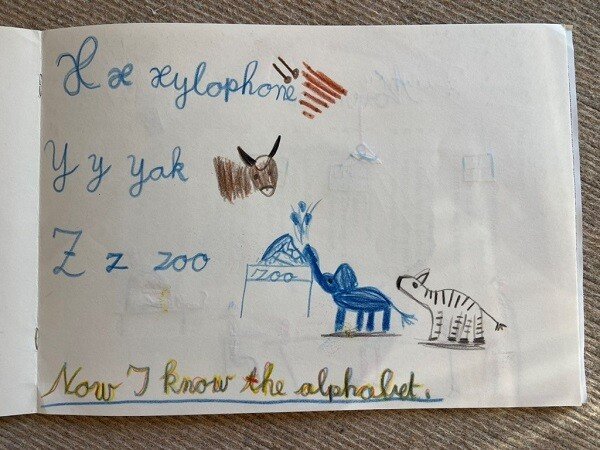 X x xylophone
Y y yak
Z z zoo
ZOO
Now I know the alphabet.